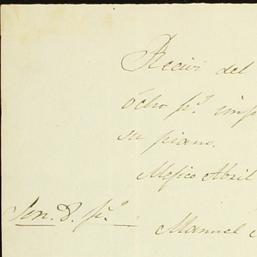 Recivi del
ocho ps. imp
su piano.
Mejico Abril
Son 8. ps.
Manuel